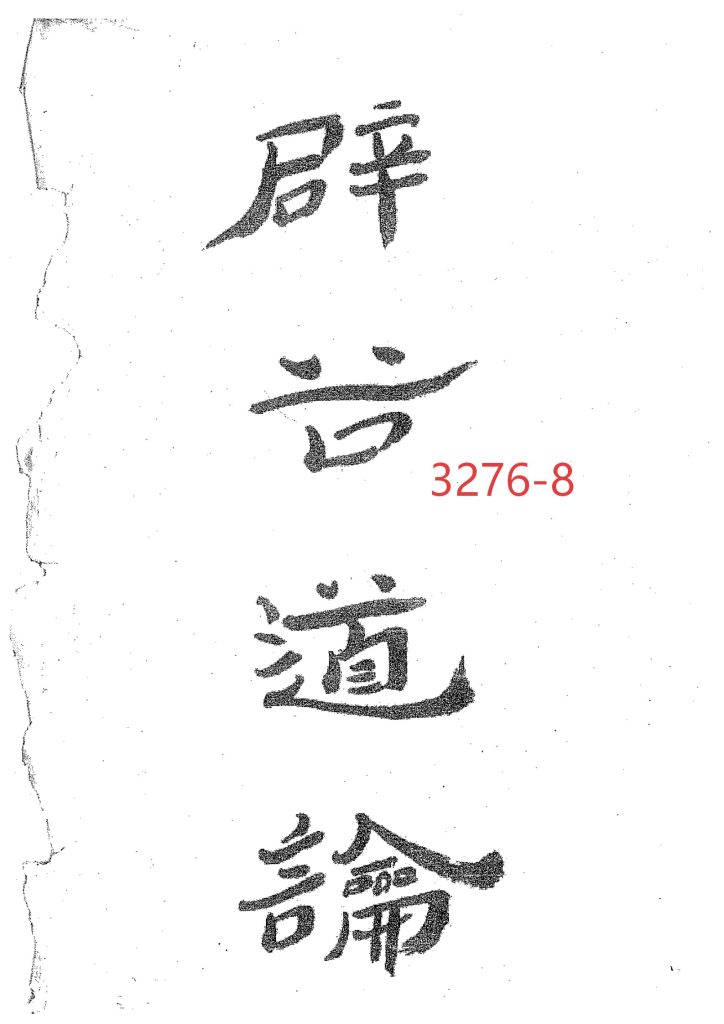 辟
道
論
3276-8